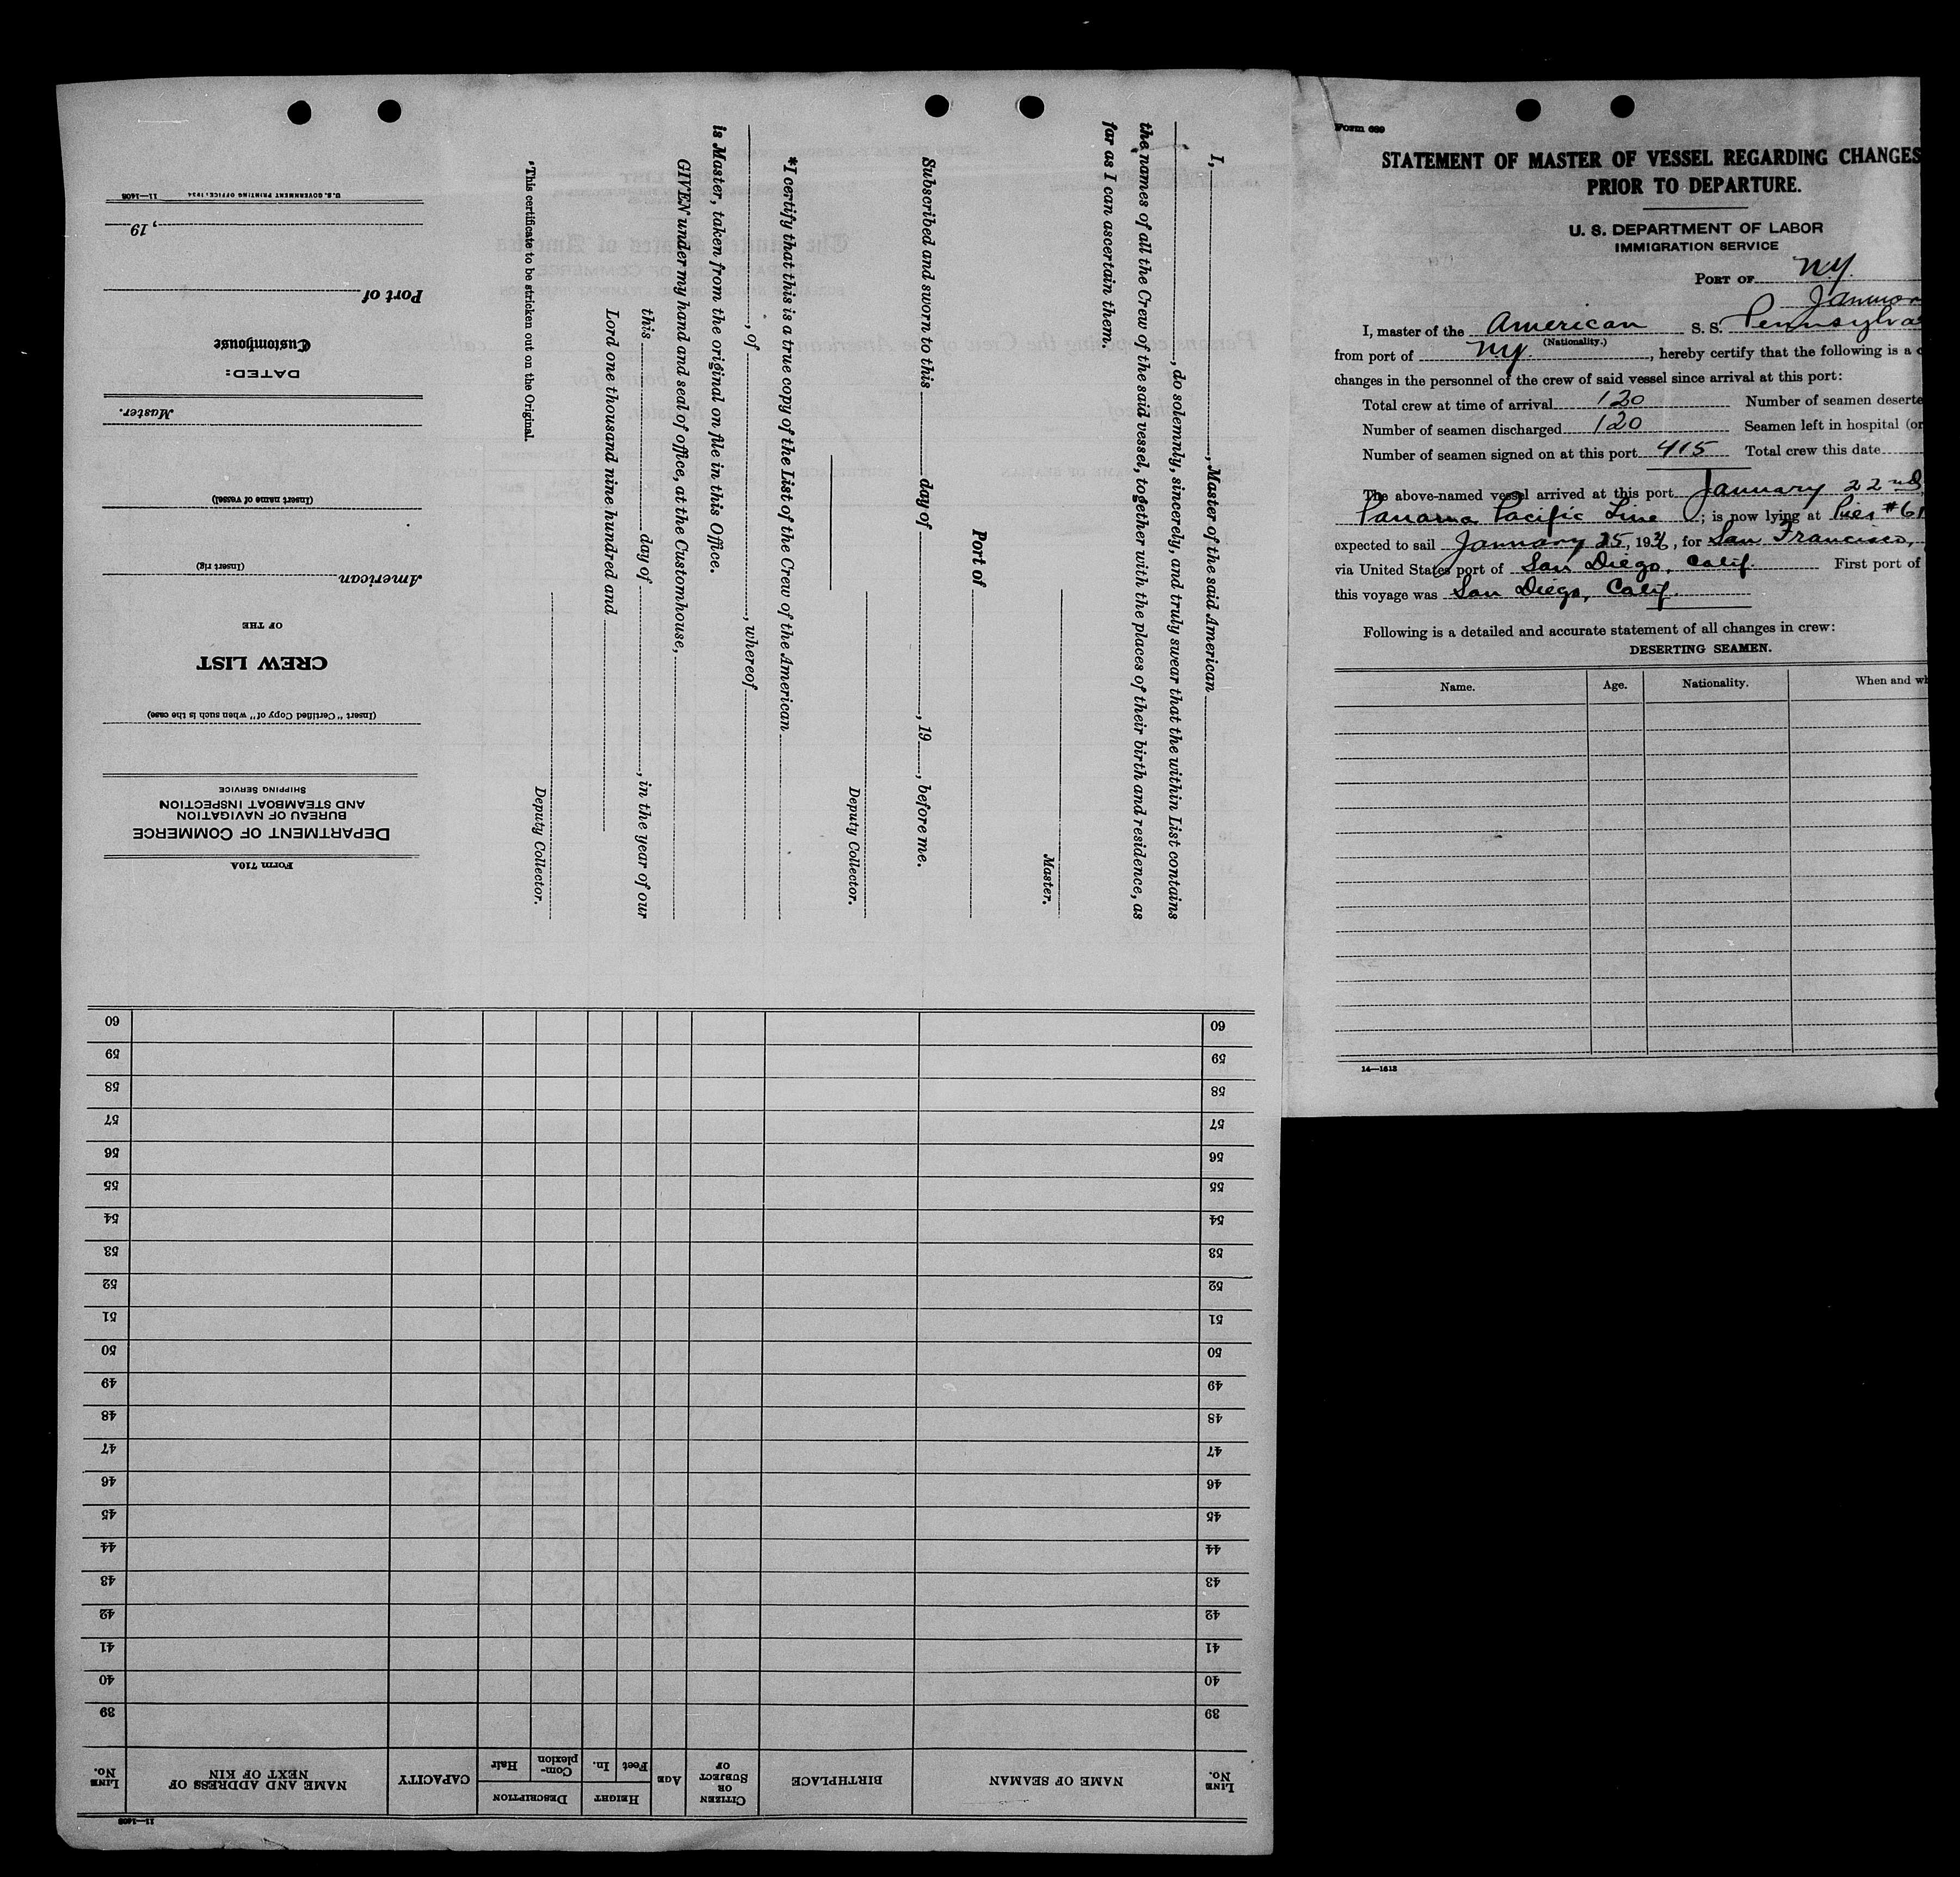 Form 689
STATEMENT OF MASTER OF VESSEL REGARDING CHANGES
PRIOR TO DEPARTURE.
U. S. DEPARTMENT OF LABOR
IMMIGRATION SERVICE
PORT OF N.Y.
I, master of the American S. S. Pennsylva
(Nationality.)
from port of N.Y., hereby certify that the following is a
changes in the personnel of the crew of said vessel since arrival at this port:
Total crew at time of arrival 120 Number of seamen deserte
Number of seamen discharged 120 Seamen left in hospital (or
Number of seamen signed on at this port 415 Total crew this date
The above-named vessel arrived at this port January 22nd,
Panama Pacific Line; is now lying at Pier #61
expected to sail January 25, 193, for San Francisco,
via United States port of San Diego, Calif. First port of
this voyage was San Diego, Calif.
Following is a detailed and accurate statement of all changes in crew:
DESERTING SEAMEN.
Name. Age. Nationality. When and wh
14—1613
I, , Master of the said American
, do solemnly, sincerely, and truly swear that the within List contains
the names of all the Crew of the said vessel, together with the places of their birth and residence, as
far as I can ascertain them.
Master.
Port of
Subscribed and sworn to this day of , 19 , before me.
Deputy Collector.
*I certify that this is a true copy of the List of the Crew of the American
, of , whereof
is Master, taken from the original on file in this Office.
GIVEN under my hand and seal of office, at the Customhouse,
this day of , in the year of our
Lord one thousand nine hundred and
Deputy Collector.
*This certificate to be stricken out on the Original.
Form 710A
DEPARTMENT OF COMMERCE
BUREAU OF NAVIGATION
AND STEAMBOAT INSPECTION
SHIPPING SERVICE
(Insert "Certified Copy of" when such is the case)
CREW LIST
OF THE
American
(Insert rig)
(Insert name of vessel)
Master.
DATED:
Customhouse
Port of
, 19
U.S. GOVERNMENT PRINTING OFFICE: 1934 11—1408
11—1408
LINE No. NAME OF SEAMAN BIRTHPLACE CITIZEN OR SUBJECT OF AGE HEIGHT Feet In. DESCRIPTION Complexion Hair CAPACITY NAME AND ADDRESS OF NEXT OF KIN LINE No.
39 39
40 40
41 41
42 42
43 43
44 44
45 45
46 46
47 47
48 48
49 49
50 50
51 51
52 52
53 53
54 54
55 55
56 56
57 57
58 58
59 59
60 60